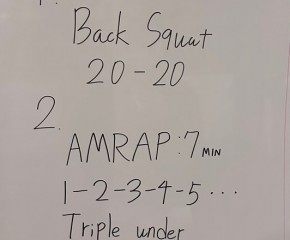 1.
Back Squat
20-20
2.
AMRAP:7 MIN
1-2-3-4-5...
Triple under